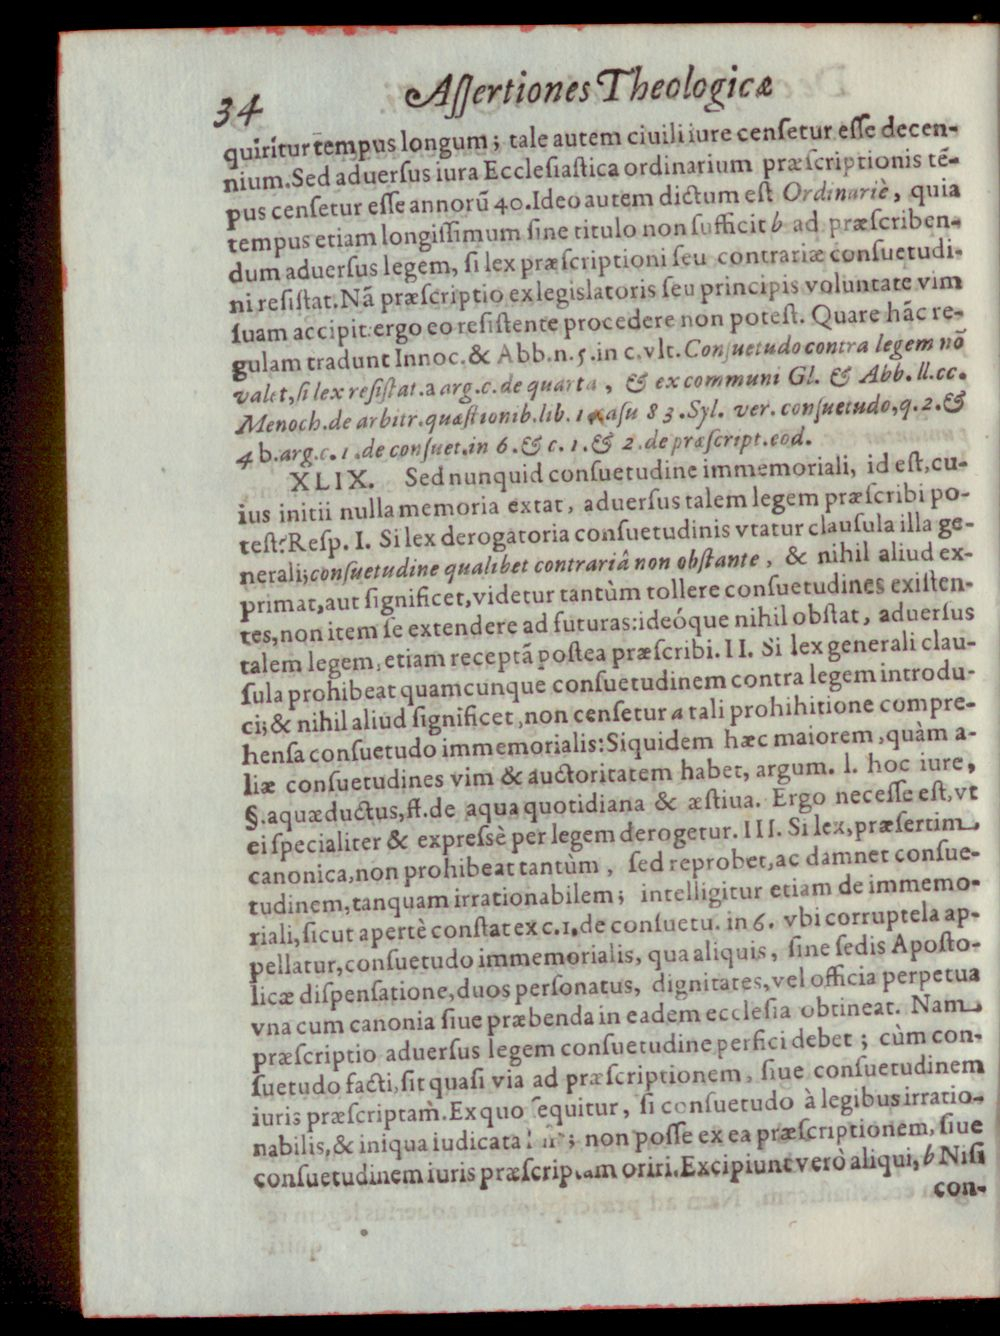 34 Aſſertiones Theologicæ
quiritur tempus longum; tale autem ciuili iure cenſetur eſſe decen-
nium. Sed aduerſus iura Eccleſiaſtica ordinarium præſcriptionis tẽ-
pus cenſetur eſſe annorũ 40. Ideo autem dictum eſt Ordinariè, quia
tempus etiam longiſſimum ſine titulo non ſufficit b ad præſcriben-
dum aduerſus legem, ſi lex præſcriptioni ſeu contrariæ conſuetudi-
ni reſiſtat. Nã præſcriptio ex legislatoris ſeu principis voluntate vim
ſuam accipit: ergo eo reſiſtente procedere non poteſt. Quare hãc re-
gulam tradunt Innoc. & Abb. n. 5. in c. vlt. Conſuetudo contra legem nõ
valet, ſi lex reſiſtat. a arg. c. de quarta, & ex communi Gl. & Abb. ll. cc.
Menoch. de arbitr. quæſtionib. lib. 1 caſu 83. Syl. ver. conſuetudo, q. 2. &
4 b. arg. c. 1. de conſuet. in 6. & c. 1. & 2. de præſcript. eod.
XLIX. Sed nunquid conſuetudine immemoriali, id eſt, cu-
ius initii nulla memoria extat, aduerſus talem legem præſcribi po-
teſt? Reſp. I. Si lex derogatoria conſuetudinis vtatur clauſula illa ge-
nerali; conſuetudine qualibet contrariâ non obſtante, & nihil aliud ex-
primat, aut ſignificet, videtur tantùm tollere conſuetudines exiſten-
tes, non item ſe extendere ad futuras: ideóque nihil obſtat, aduerſus
talem legem, etiam receptã poſtea præſcribi. II. Si lex generali clau-
ſula prohibeat quamcunque conſuetudinem contra legem introdu-
ci; & nihil aliud ſignificet, non cenſetur a tali prohihitione compre-
henſa conſuetudo immemorialis: Siquidem hæc maiorem, quàm a-
liæ conſuetudines vim & auctoritatem habet, argum. l. hoc iure,
§. aquæductus, ff. de aqua quotidiana & æſtiua. Ergo neceſſe eſt, vt
ei ſpecialiter & expreſsè per legem derogetur. III. Si lex, præſertim
canonica, non prohibeat tantùm, ſed reprobet, ac damnet conſue-
tudinem, tanquam irrationabilem; intelligitur etiam de immemo-
riali, ſicut apertè conſtat ex c. 1. de conſuetu. in 6. vbi corruptela ap-
pellatur, conſuetudo immemorialis, qua aliquis, ſine ſedis Apoſto-
licæ diſpenſatione, duos perſonatus, dignitates, vel officia perpetua
vna cum canonia ſiue præbenda in eadem eccleſia obtineat. Nam
præſcriptio aduerſus legem conſuetudine perfici debet; cùm con-
ſuetudo facti, ſit quaſi via ad præſcriptionem, ſiue conſuetudinem
iuris præſcriptam. Ex quo ſequitur, ſi conſuetudo à legibus irratio-
nabilis, & iniqua iudicata ; non poſſe ex ea præſcriptionem, ſiue
conſuetudinem iuris præſcriptam oriri. Excipiunt verò aliqui, b Niſi
con-